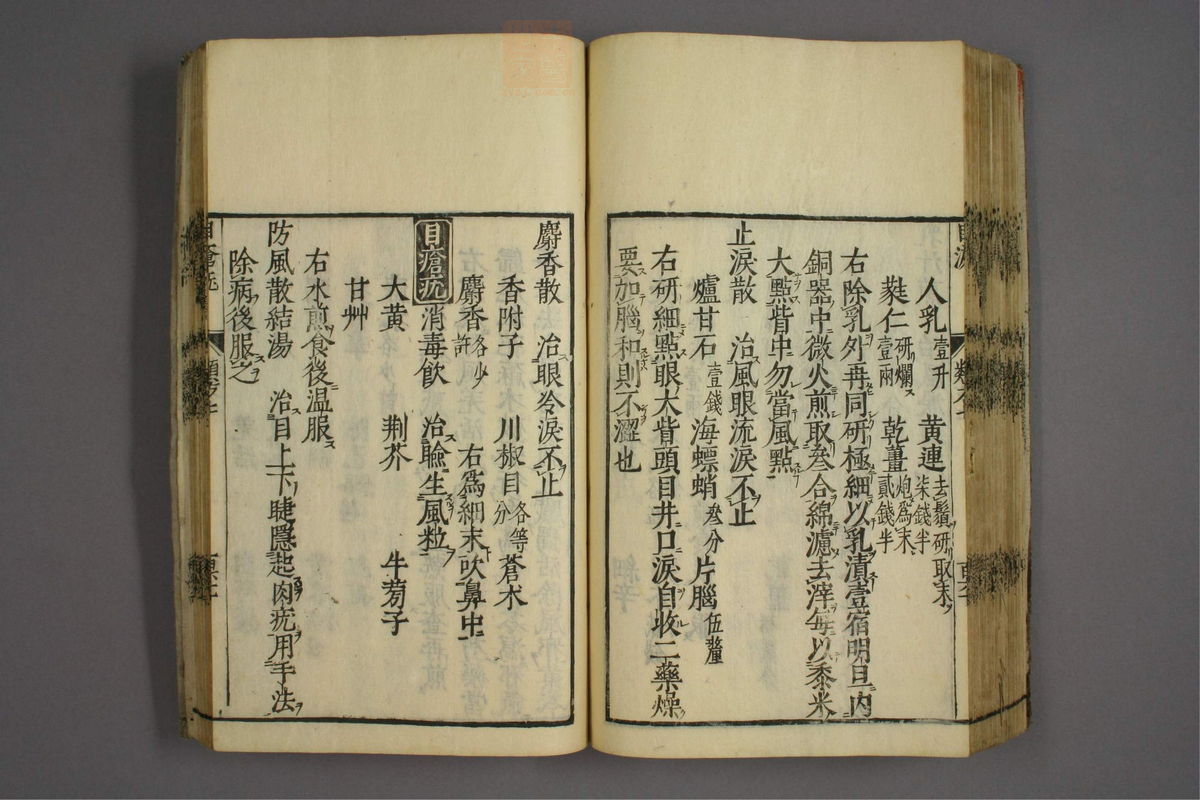 人乳壹升　黄連去鬚研取末柒錢半
蕤仁研爛壹兩　乾薑炮爲末貳錢半
右除乳外再同研極細以乳漬壹宿明旦内
銅器中微火煎取叄合綿濾去滓每以黍米
大點眥中勿當風點
止淚散　治風眼流淚不止
爐甘石壹錢　海螵蛸叄分　片腦伍釐
右研細點眼大眥頭目井口淚自收二藥燥
要加腦和則不澀也
麝香散　治眼冷淚不止
香附子　川椒目各等分　蒼朮
麝香各少許　右爲細末吹鼻中
目瘡疣　消毒飲　治瞼生風粒
大黄　荆芥　牛蒡子
甘艸
右水煎食後温服
防風散結湯　治目上下睫隱起肉疣用手法
除病後服之